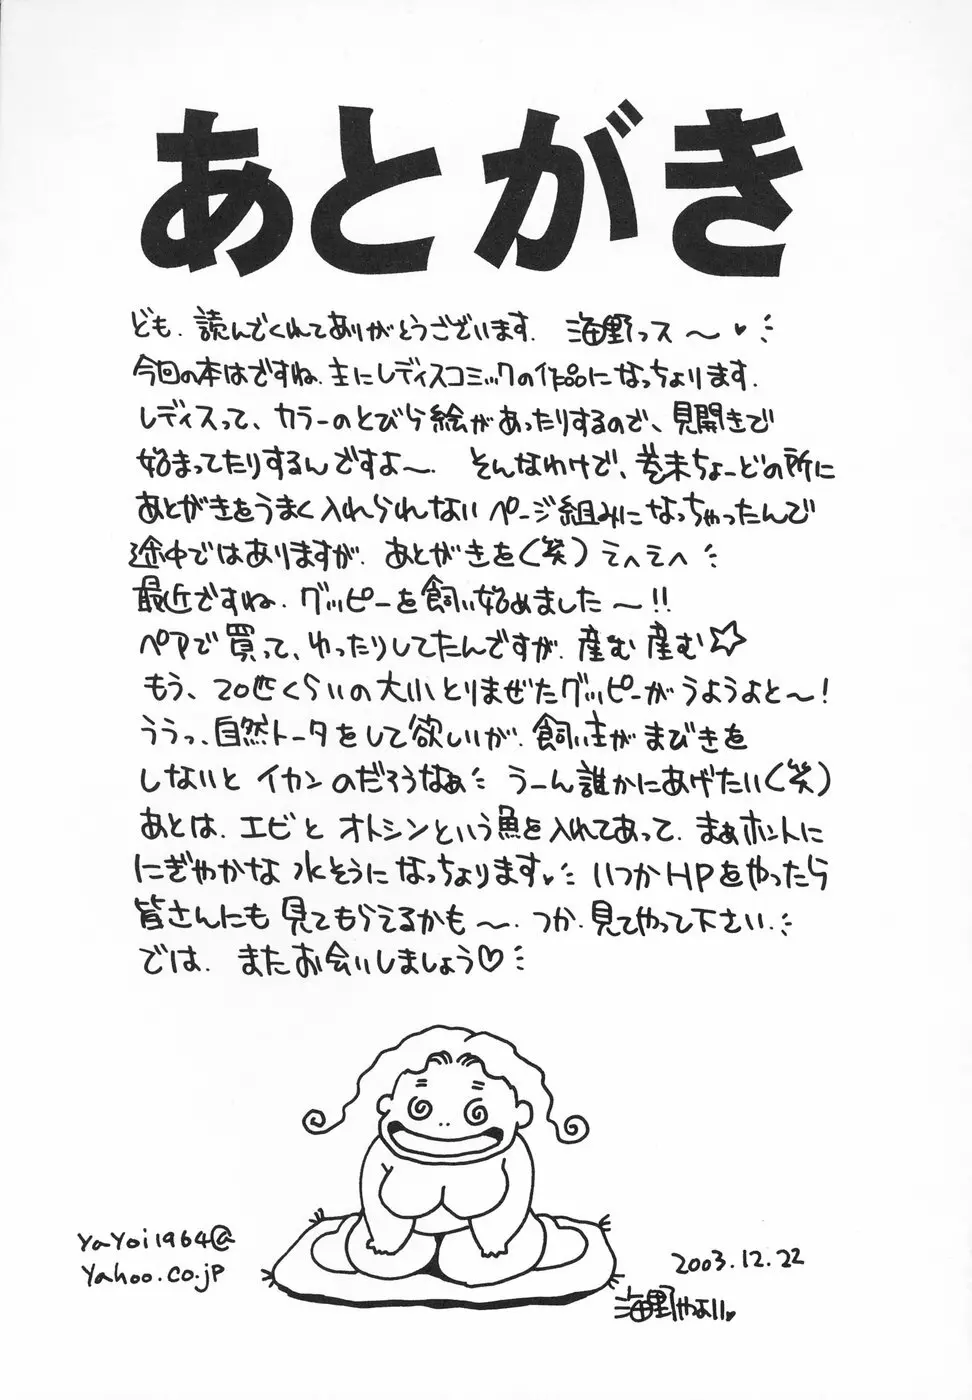 あとがき
ども、読んでくれてありがとうございます。海野っス〜♥
今回の本はですね、主にレディスコミックの作品になっちょります。
レディスって、カラーのとびら絵があったりするので、見開きで
始まってたりするんですよ〜。そんなわけで、巻末ちょーどの所に
あとがきをうまく入れられないページ組みになっちゃったんで
途中ではありますが、あとがきを(笑)えへえへ
最近ですね、グッピーを飼い始めました〜!!
ペアで買って、ゆったりしてたんですが、産む産む☆
もう、20匹くらいの大小とりまぜたグッピーがうようよと〜!
ううっ、自然トータをして欲しいが、飼い主がまびきを
しないとイカンのだろうなぁ うーん誰かにあげたい(笑)
あとは、エビとオトシンという魚を入れてあって、まぁホントに
にぎやかな水そうになっちょります♥いつかHPをやったら
皆さんにも見てもらえるかも〜。つか、見てやって下さい。
では、またお会いしましょう♡
YaYoi1964@
Yahoo.co.jp
2003.12.22
海野やよい♥